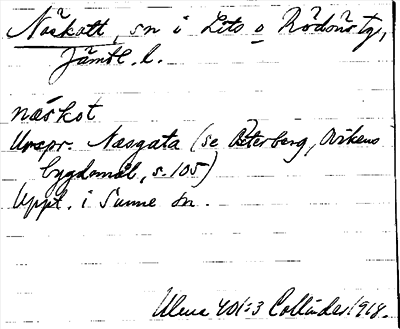 Näskott, sn i Lits o Rödöns tg,
Jämtl. l.
näskot
Urspr. Næsgata (se Österberg, Ovikens
bygdemål, s. 105)
Uppt. i Sunne sn.
Ulma 401:3 Collinder 1918.